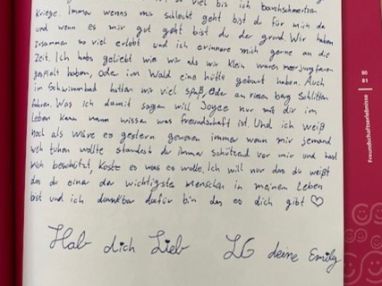 so viel bis ich bauchschmertzen
Kriege. Immer wenns mir schlecht geht bist du für mich da
und wenn es mir gut geht bist du der grund. Wir haben
zusammen so viel erlebt und ich erinnere mich gerne an die
Zeit. Ich habs geliebt wie wir als wir klein waren meerjungfrauen
gespielt haben, oder im Wald eine hütte gebaut haben. Auch
im Schwimmbad hatten wir viel spaß, oder an riesen berg Schlitten
fahren. Was ich damit sagen will Joyce nur mit dir im
Leben kann man wissen was freundschaft ist. Und ich weiß
noch als wäre es gestern gewesen immer wenn mir jemand
weh tuhen wollte standest du immer schützend vor mir und hast
mich beschützt, Koste es was es wolle. Ich will nur das du weißt
das du einer der wichtigste menschen in meinen Leben
bist und ich dankbar dafür bin das es dich gibt ♡
Hab dich Lieb LG deine Emily
Freundschaftserlebnisse